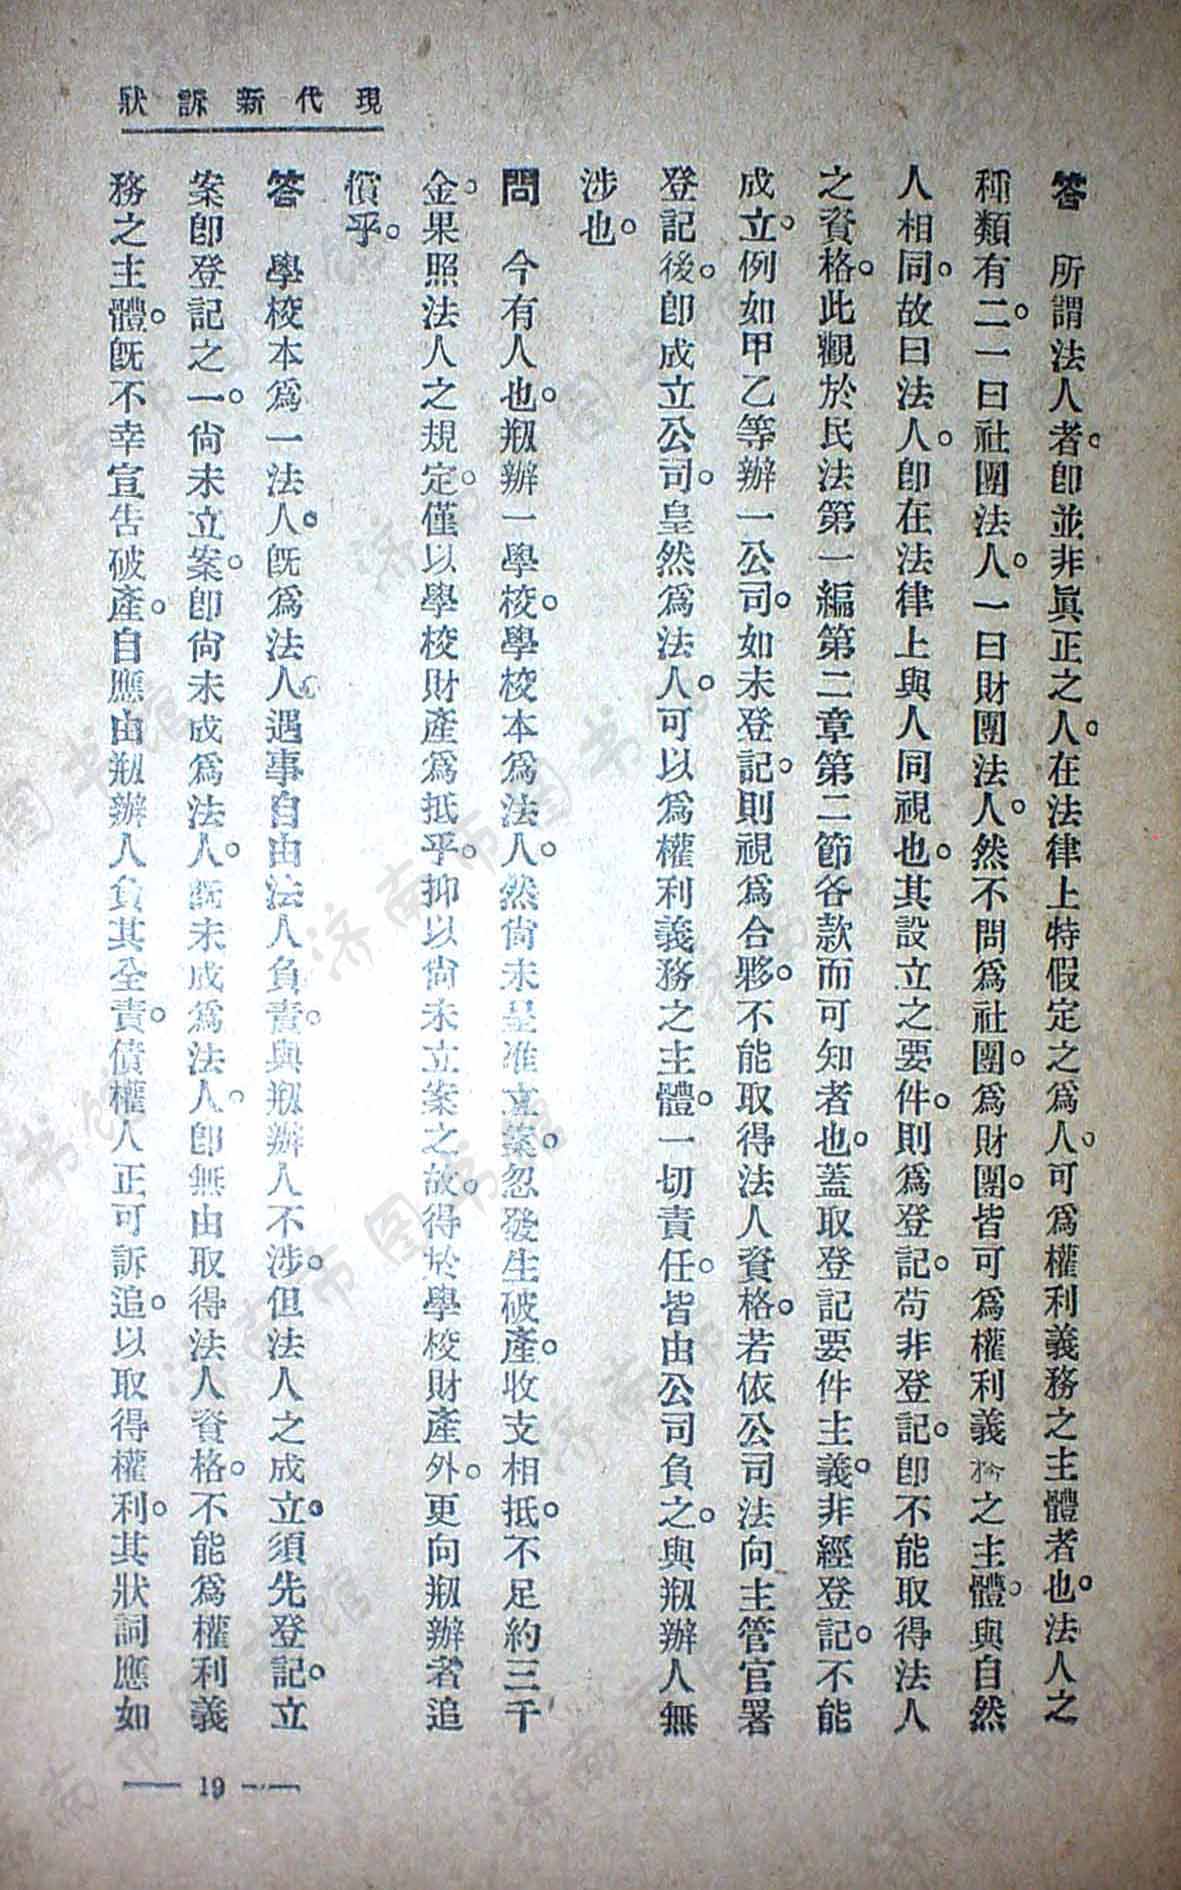 現代新訴狀
答　所謂法人者。卽並非眞正之人。在法律上特假定之爲人。可爲權利義務之主體者也。法人之
種類有二。一曰社團法人。一曰財團法人。然不問爲社團。爲財團。皆可爲權利義務之主體。與自然
人相同。故曰法人。卽在法律上與人同視也。其設立之要件。則爲登記。苟非登記。卽不能取得法人
之資格。此觀於民法第一編第二章第二節各款而可知者也。蓋取登記要件主義。非經登記。不能
成立。例如甲乙等辦一公司。如未登記。則視爲合夥。不能取得法人資格。若依公司法向主管官署
登記後。卽成立公司。皇然爲法人。可以爲權利義務之主體。一切責任。皆由公司負之。與剏辦人無
涉也。
問　今有人也。剏辦一學校。學校本爲法人。然尙未呈准立案。忽發生破產。收支相抵。不足約三千
金。果照法人之規定。僅以學校財產爲抵乎。抑以尙未立案之故。得於學校財產外。更向剏辦者追
償乎。
答　學校本爲一法人。旣爲法人。遇事自由法人負責。與剏辦人不涉。但法人之成立。須先登記。立
案卽登記之一。尙未立案。卽尙未成爲法人。旣未成爲法人。卽無由取得法人資格。不能爲權利義
務之主體。旣不幸宣告破產。自應由剏辦人負其全責。債權人正可訴追。以取得權利。其狀詞應如
— 19 —
济南市图书馆